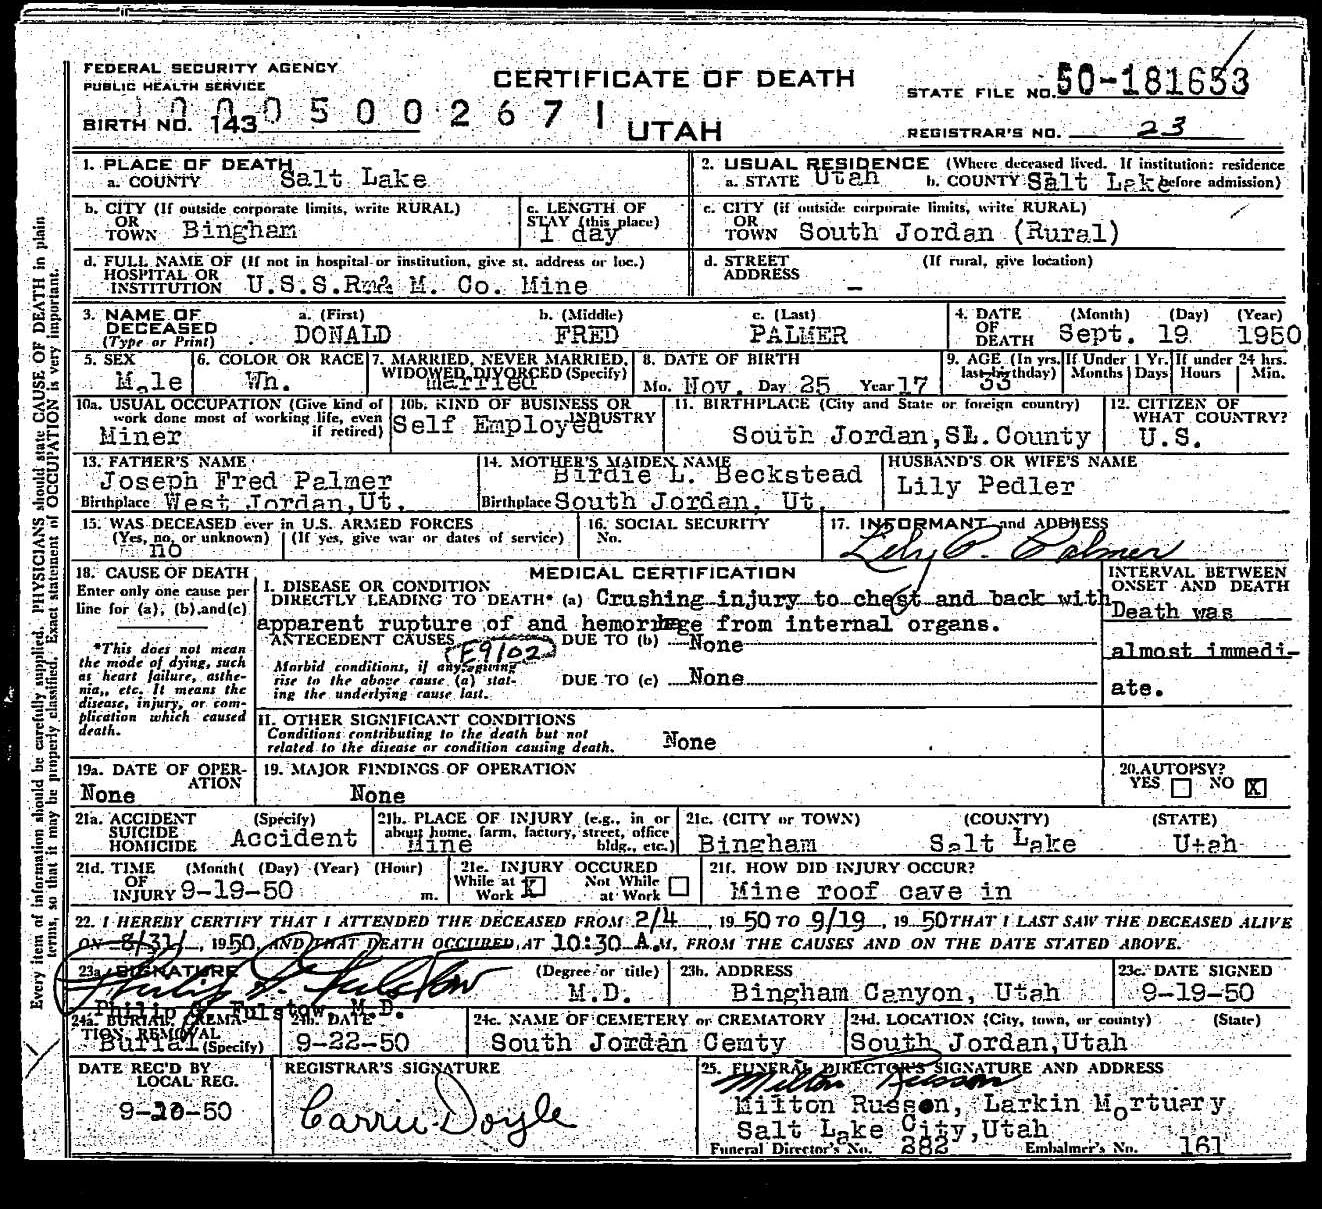 FEDERAL SECURITY AGENCY
PUBLIC HEALTH SERVICE
CERTIFICATE OF DEATH
STATE FILE NO. 50-181653
BIRTH NO. 143
05002671
UTAH
REGISTRAR'S NO. 23
1. PLACE OF DEATH
a. COUNTY Salt Lake
2. USUAL RESIDENCE (Where deceased lived. If institution: residence before admission)
a. STATE Utah b. COUNTY Salt Lake
b. CITY (If outside corporate limits, write RURAL)
OR
TOWN Bingham
c. LENGTH OF
STAY (this place)
1 day
c. CITY (if outside corporate limits, write RURAL)
OR
TOWN South Jordan (Rural)
d. FULL NAME OF (If not in hospital or institution, give st. address or loc.)
HOSPITAL OR
INSTITUTION U.S.S.R.& M. Co. Mine
d. STREET (If rural, give location)
ADDRESS –
3. NAME OF
DECEASED
(Type or Print)
a. (First) b. (Middle) c. (Last)
DONALD FRED PALMER
4. DATE OF DEATH (Month) (Day) (Year)
Sept. 19 1950
5. SEX
Male
6. COLOR OR RACE
Wh.
7. MARRIED, NEVER MARRIED,
WIDOWED, DIVORCED (Specify)
Married
8. DATE OF BIRTH
Mo. Nov. Day 25 Year 17
9. AGE (In yrs. last birthday)
33
If Under 1 Yr. Months Days
If under 24 hrs. Hours Min.
10a. USUAL OCCUPATION (Give kind of
work done most of working life, even
if retired)
Miner
10b. KIND OF BUSINESS OR
INDUSTRY
Self Employed
11. BIRTHPLACE (City and State or foreign country)
South Jordan, SL. County
12. CITIZEN OF
WHAT COUNTRY?
U.S.
13. FATHER'S NAME
Joseph Fred Palmer
Birthplace West Jordan, Ut.
14. MOTHER'S MAIDEN NAME
Birdie L. Beckstead
Birthplace South Jordan, Ut.
HUSBAND'S OR WIFE'S NAME
Lily Pedler
15. WAS DECEASED ever in U.S. ARMED FORCES
(Yes, no, or unknown) (If yes, give war or dates of service)
no
16. SOCIAL SECURITY
No.
17. INFORMANT and ADDRESS
Lily P. Palmer
18. CAUSE OF DEATH
Enter only one cause per
line for (a), (b), and (c)
*This does not mean
the mode of dying, such
as heart failure, asthe-
nia, etc. It means the
disease, injury, or com-
plication which caused
death.
MEDICAL CERTIFICATION
I. DISEASE OR CONDITION
DIRECTLY LEADING TO DEATH* (a) Crushing injury to chest and back with
apparent rupture of and hemorrhage from internal organs.
ANTECEDENT CAUSES DUE TO (b) None
E9102
Morbid conditions, if any, giving
rise to the above cause (a) stat-
ing the underlying cause last.
DUE TO (c) None
II. OTHER SIGNIFICANT CONDITIONS
Conditions contributing to the death but not
related to the disease or condition causing death.
None
INTERVAL BETWEEN
ONSET AND DEATH
Death was
almost immedi-
ate.
19a. DATE OF OPER-
ATION
None
19. MAJOR FINDINGS OF OPERATION
None
20. AUTOPSY?
YES NO X
21a. ACCIDENT (Specify)
SUICIDE
HOMICIDE
Accident
21b. PLACE OF INJURY (e.g., in or
about home, farm, factory, street, office
bldg., etc.)
Mine
21c. (CITY or TOWN) (COUNTY) (STATE)
Bingham Salt Lake Utah
21d. TIME (Month) (Day) (Year) (Hour)
OF
INJURY 9-19-50 m.
21e. INJURY OCCURED
While at Work X Not While at Work
21f. HOW DID INJURY OCCUR?
Mine roof cave in
22. I HEREBY CERTIFY THAT I ATTENDED THE DECEASED FROM 2/4, 1950 TO 9/19, 1950 THAT I LAST SAW THE DECEASED ALIVE
ON 8/31/, 1950, AND THAT DEATH OCCURED AT 10:30 A.M, FROM THE CAUSES AND ON THE DATE STATED ABOVE.
23a. SIGNATURE (Degree or title)
Philip Fulstow, M.D. M.D.
23b. ADDRESS
Bingham Canyon, Utah
23c. DATE SIGNED
9-19-50
24a. BURIAL, CREMA-
TION, REMOVAL
Burial (Specify)
24b. DATE
9-22-50
24c. NAME OF CEMETERY or CREMATORY
South Jordan Cemty
24d. LOCATION (City, town, or county) (State)
South Jordan, Utah
DATE REC'D BY
LOCAL REG.
9-20-50
REGISTRAR'S SIGNATURE
Carrie Doyle
25. FUNERAL DIRECTOR'S SIGNATURE AND ADDRESS
Milton Russon
Milton Russon, Larkin Mortuary
Salt Lake City, Utah
Funeral Director's No. 282 Embalmer's No. 161
Every item of information should be carefully supplied. PHYSICIANS should state CAUSE OF DEATH in plain
terms, so that it may be properly classified. Exact statement of OCCUPATION is very important.